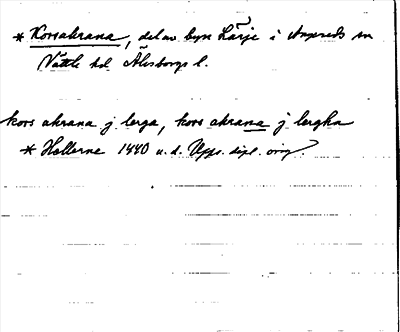 * Korsakrana, del av byn Lärje i Angereds sn
Vättle hd Älvsborgs l.
kors akrana j lerga, kors akrana j lergha
* Hallerne 1440 u. d. Upps. dipl. orig.